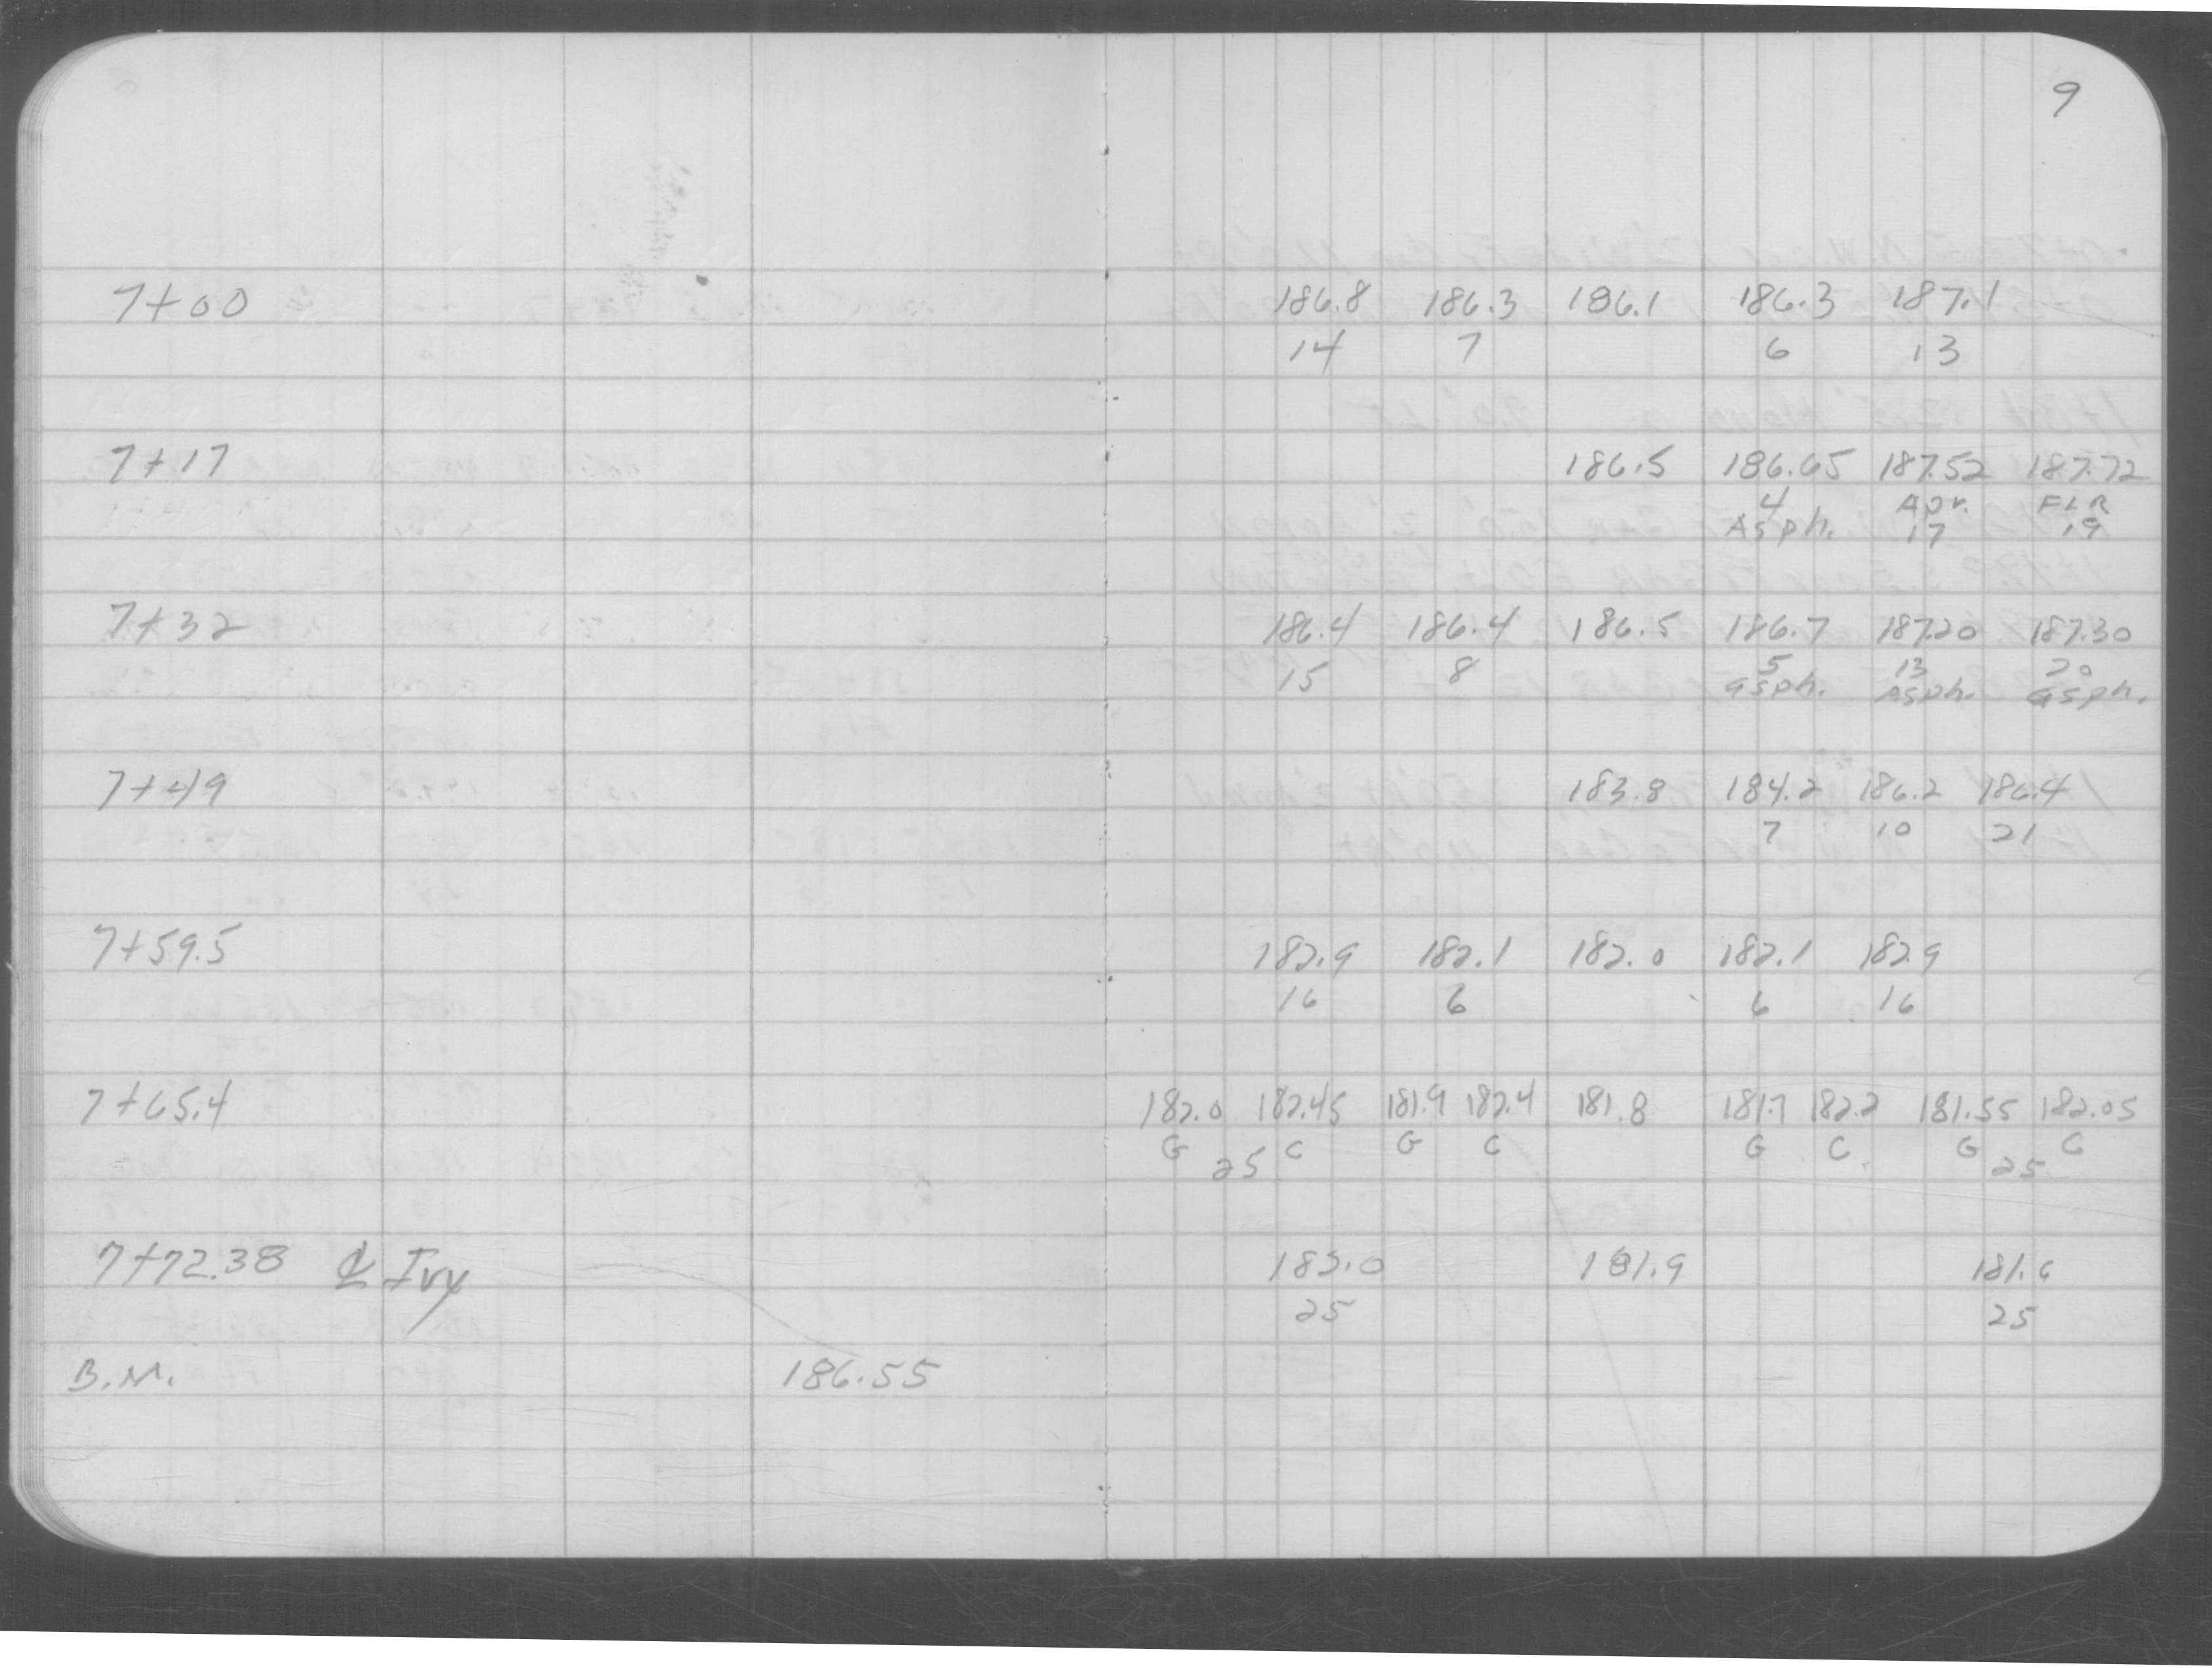 9
7+00 186.8 186.3 186.1 186.3 187.1
14 7 6 13
7+17 186.5 186.65 187.52 187.72
4 Apr. FLR
Asph. 17 19
7+32 186.4 186.4 186.5 186.7 187.20 187.30
15 8 5 13 20
asph. Asph. asph.
7+49 183.8 184.2 186.2 186.4
7 10 21
7+59.5 182.9 182.1 182.0 182.1 182.9
16 6 6 16
7+65.4 182.0 182.45 181.9 182.4 181.8 181.7 182.2 181.55 182.05
G C G C G C G C
25 25
7+72.38 ℄ Ivy 182.0 181.9 181.6
25 25
B.M. 186.55